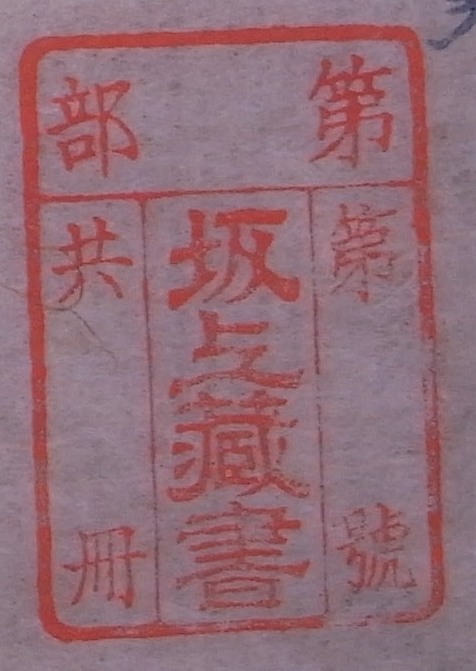 第部
第號
坂上之藏書
共冊